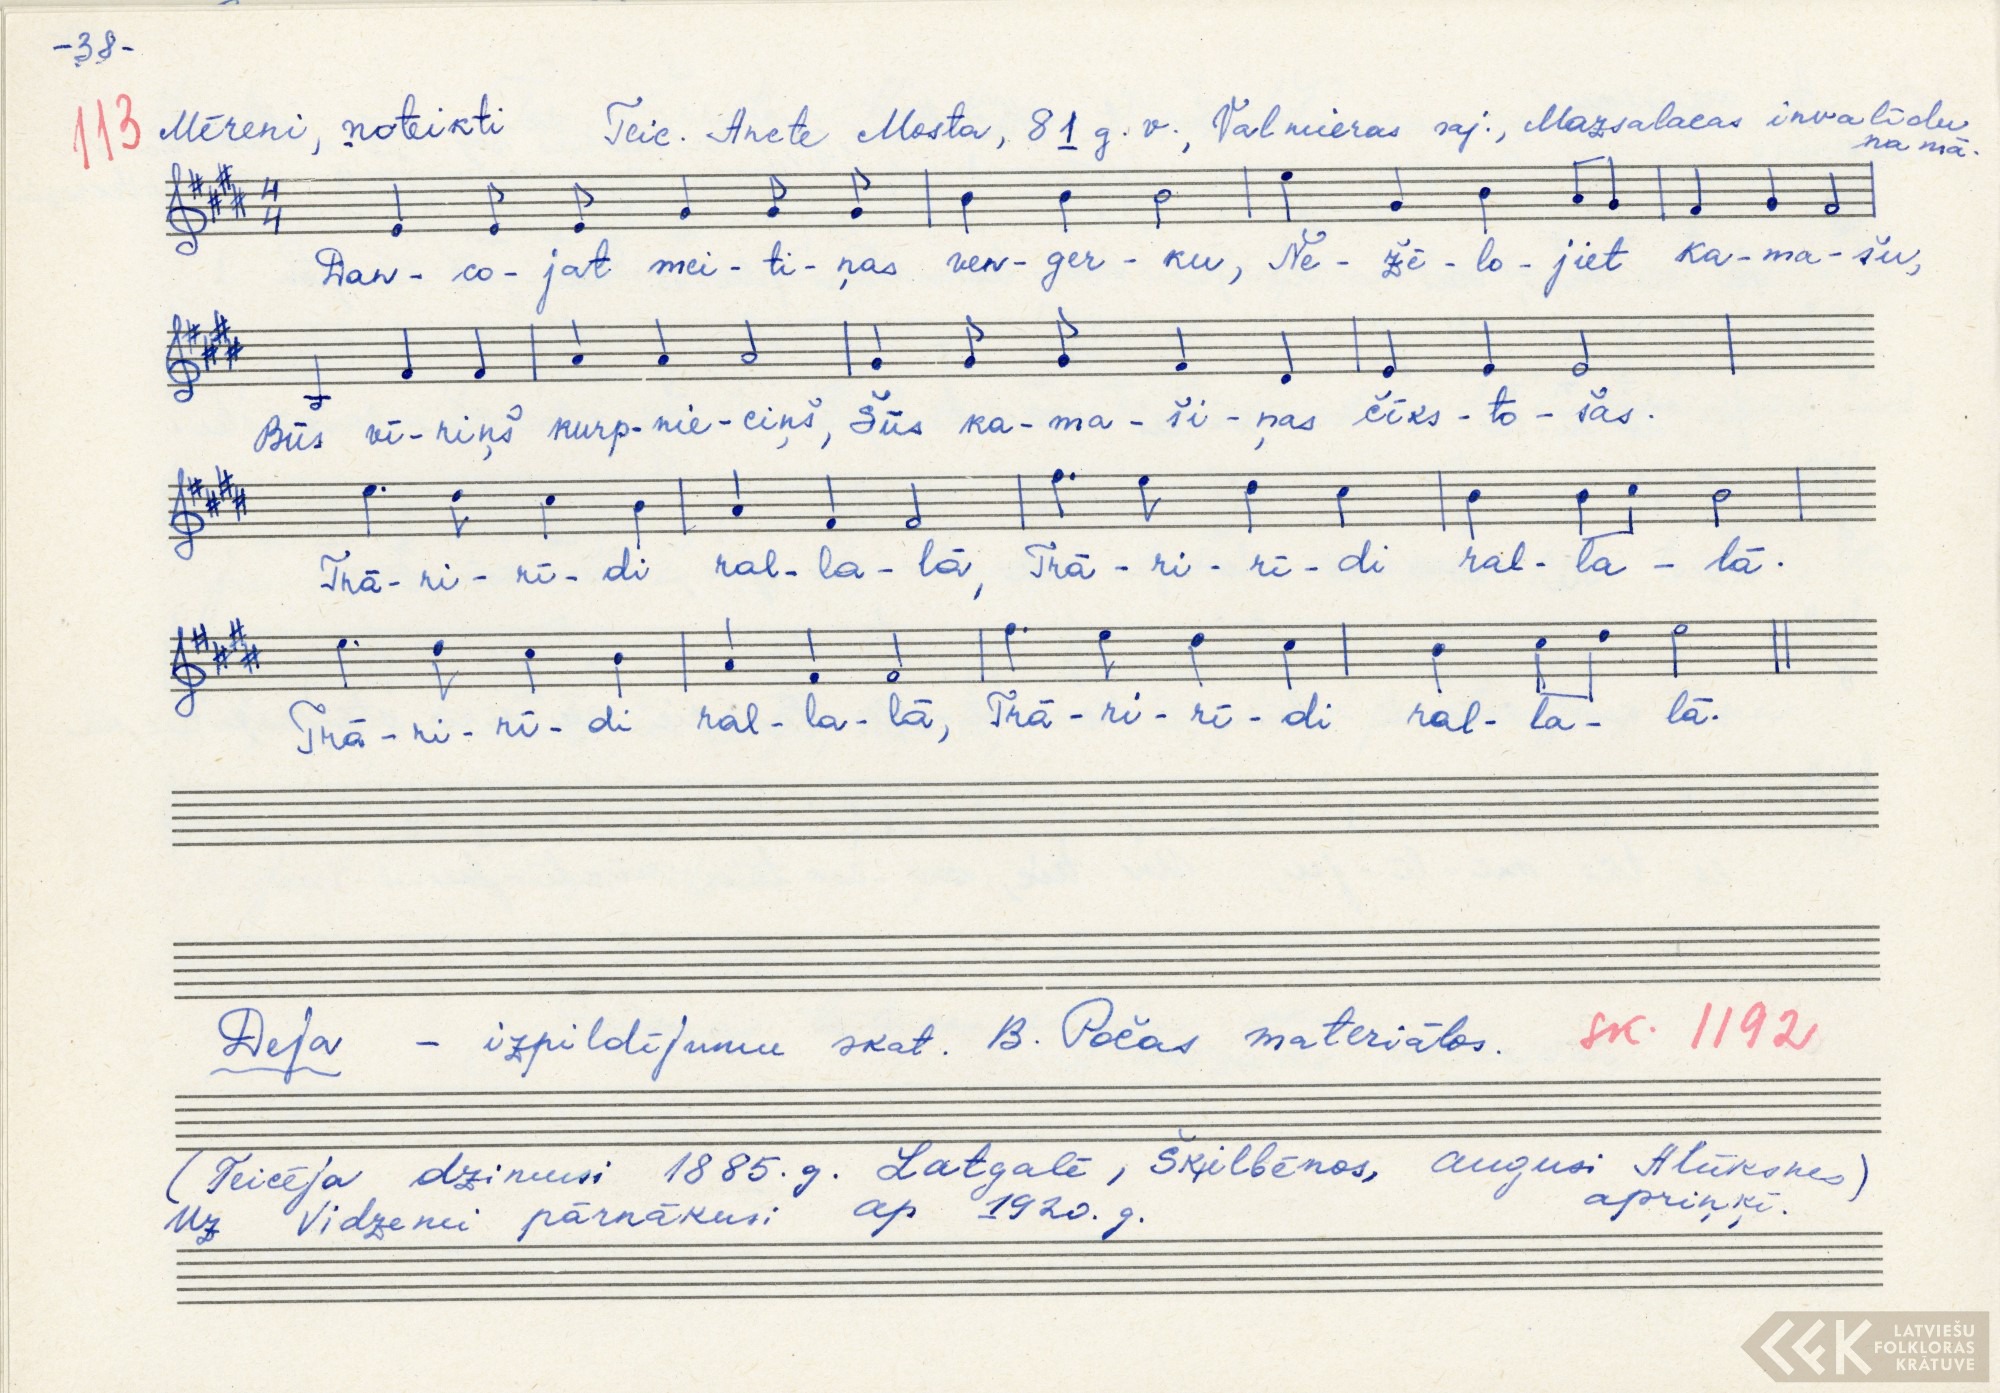 -38-
113 Mēreni, noteikti Teic. Anete Mosta, 81 g. v., Valmieras raj., Mazsalacas invalīdu
namā.
4 4
Dan - co - jat mei - ti - ņas ven - ger - ku, Ne - žē - lo - jiet ka - ma - šu,
Būs vī - riņš kurp - nie - ciņš, Šūs ka - ma - ši - ņas čīks - to - šas.
Trā - ri - rī - di ral - la - lā, Trā - ri - rī - di ral - la - lā.
Trā - ri - rī - di ral - la - lā, Trā - ri - rī - di ral - la - lā.
Deja - izpildījumu skat. B. Počas materiālos. sk. 1192
(Teicēja dzimusi 1885. g. Latgalē, Šķilbēnos, augusi Alūksnes)
apriņķī.
Uz Vidzemi pārnākusi ap 1920. g.
LATVIEŠU
FOLKLORAS
KRĀTUVE